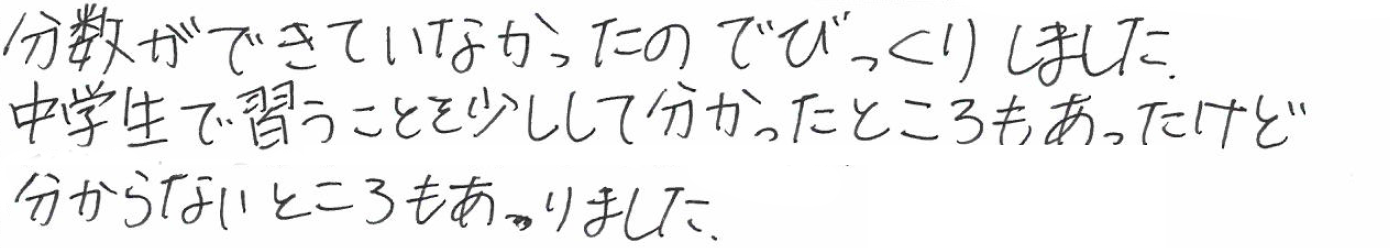 分数ができていなかったのでびっくりしました.
中学生で習うことを少しして分かったところもあったけど
分からないところもあっりました.